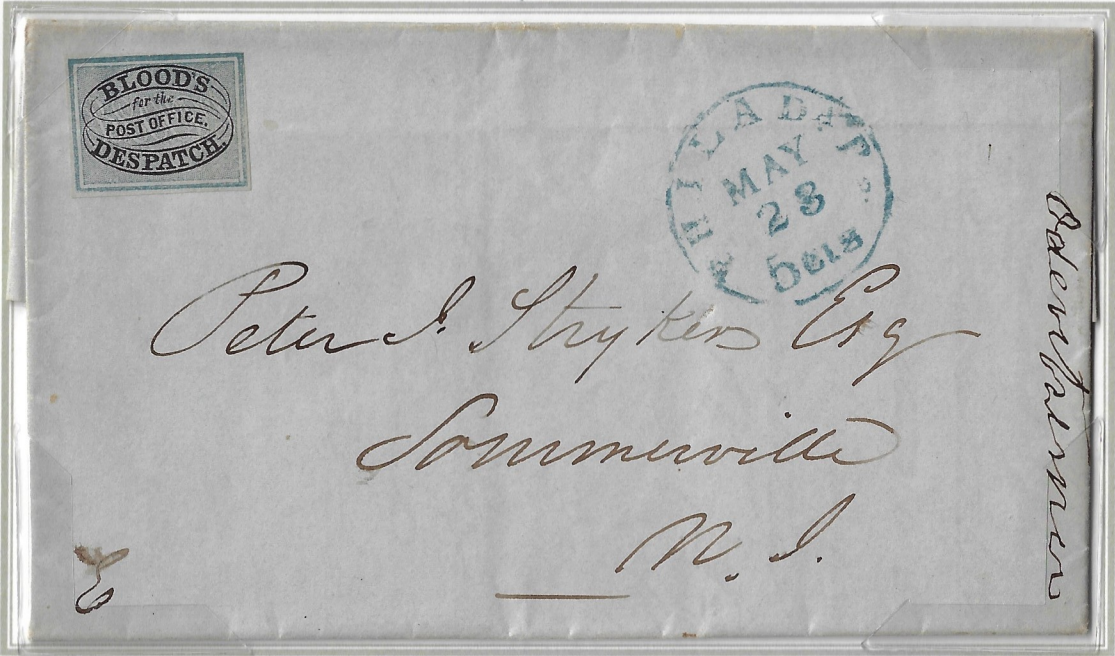 BLOOD'S
for the
POST OFFICE.
DESPATCH.
PHILADA Pa
MAY
28
5 cts
Peter J. Strykers Esq
Sommerville
N. J.